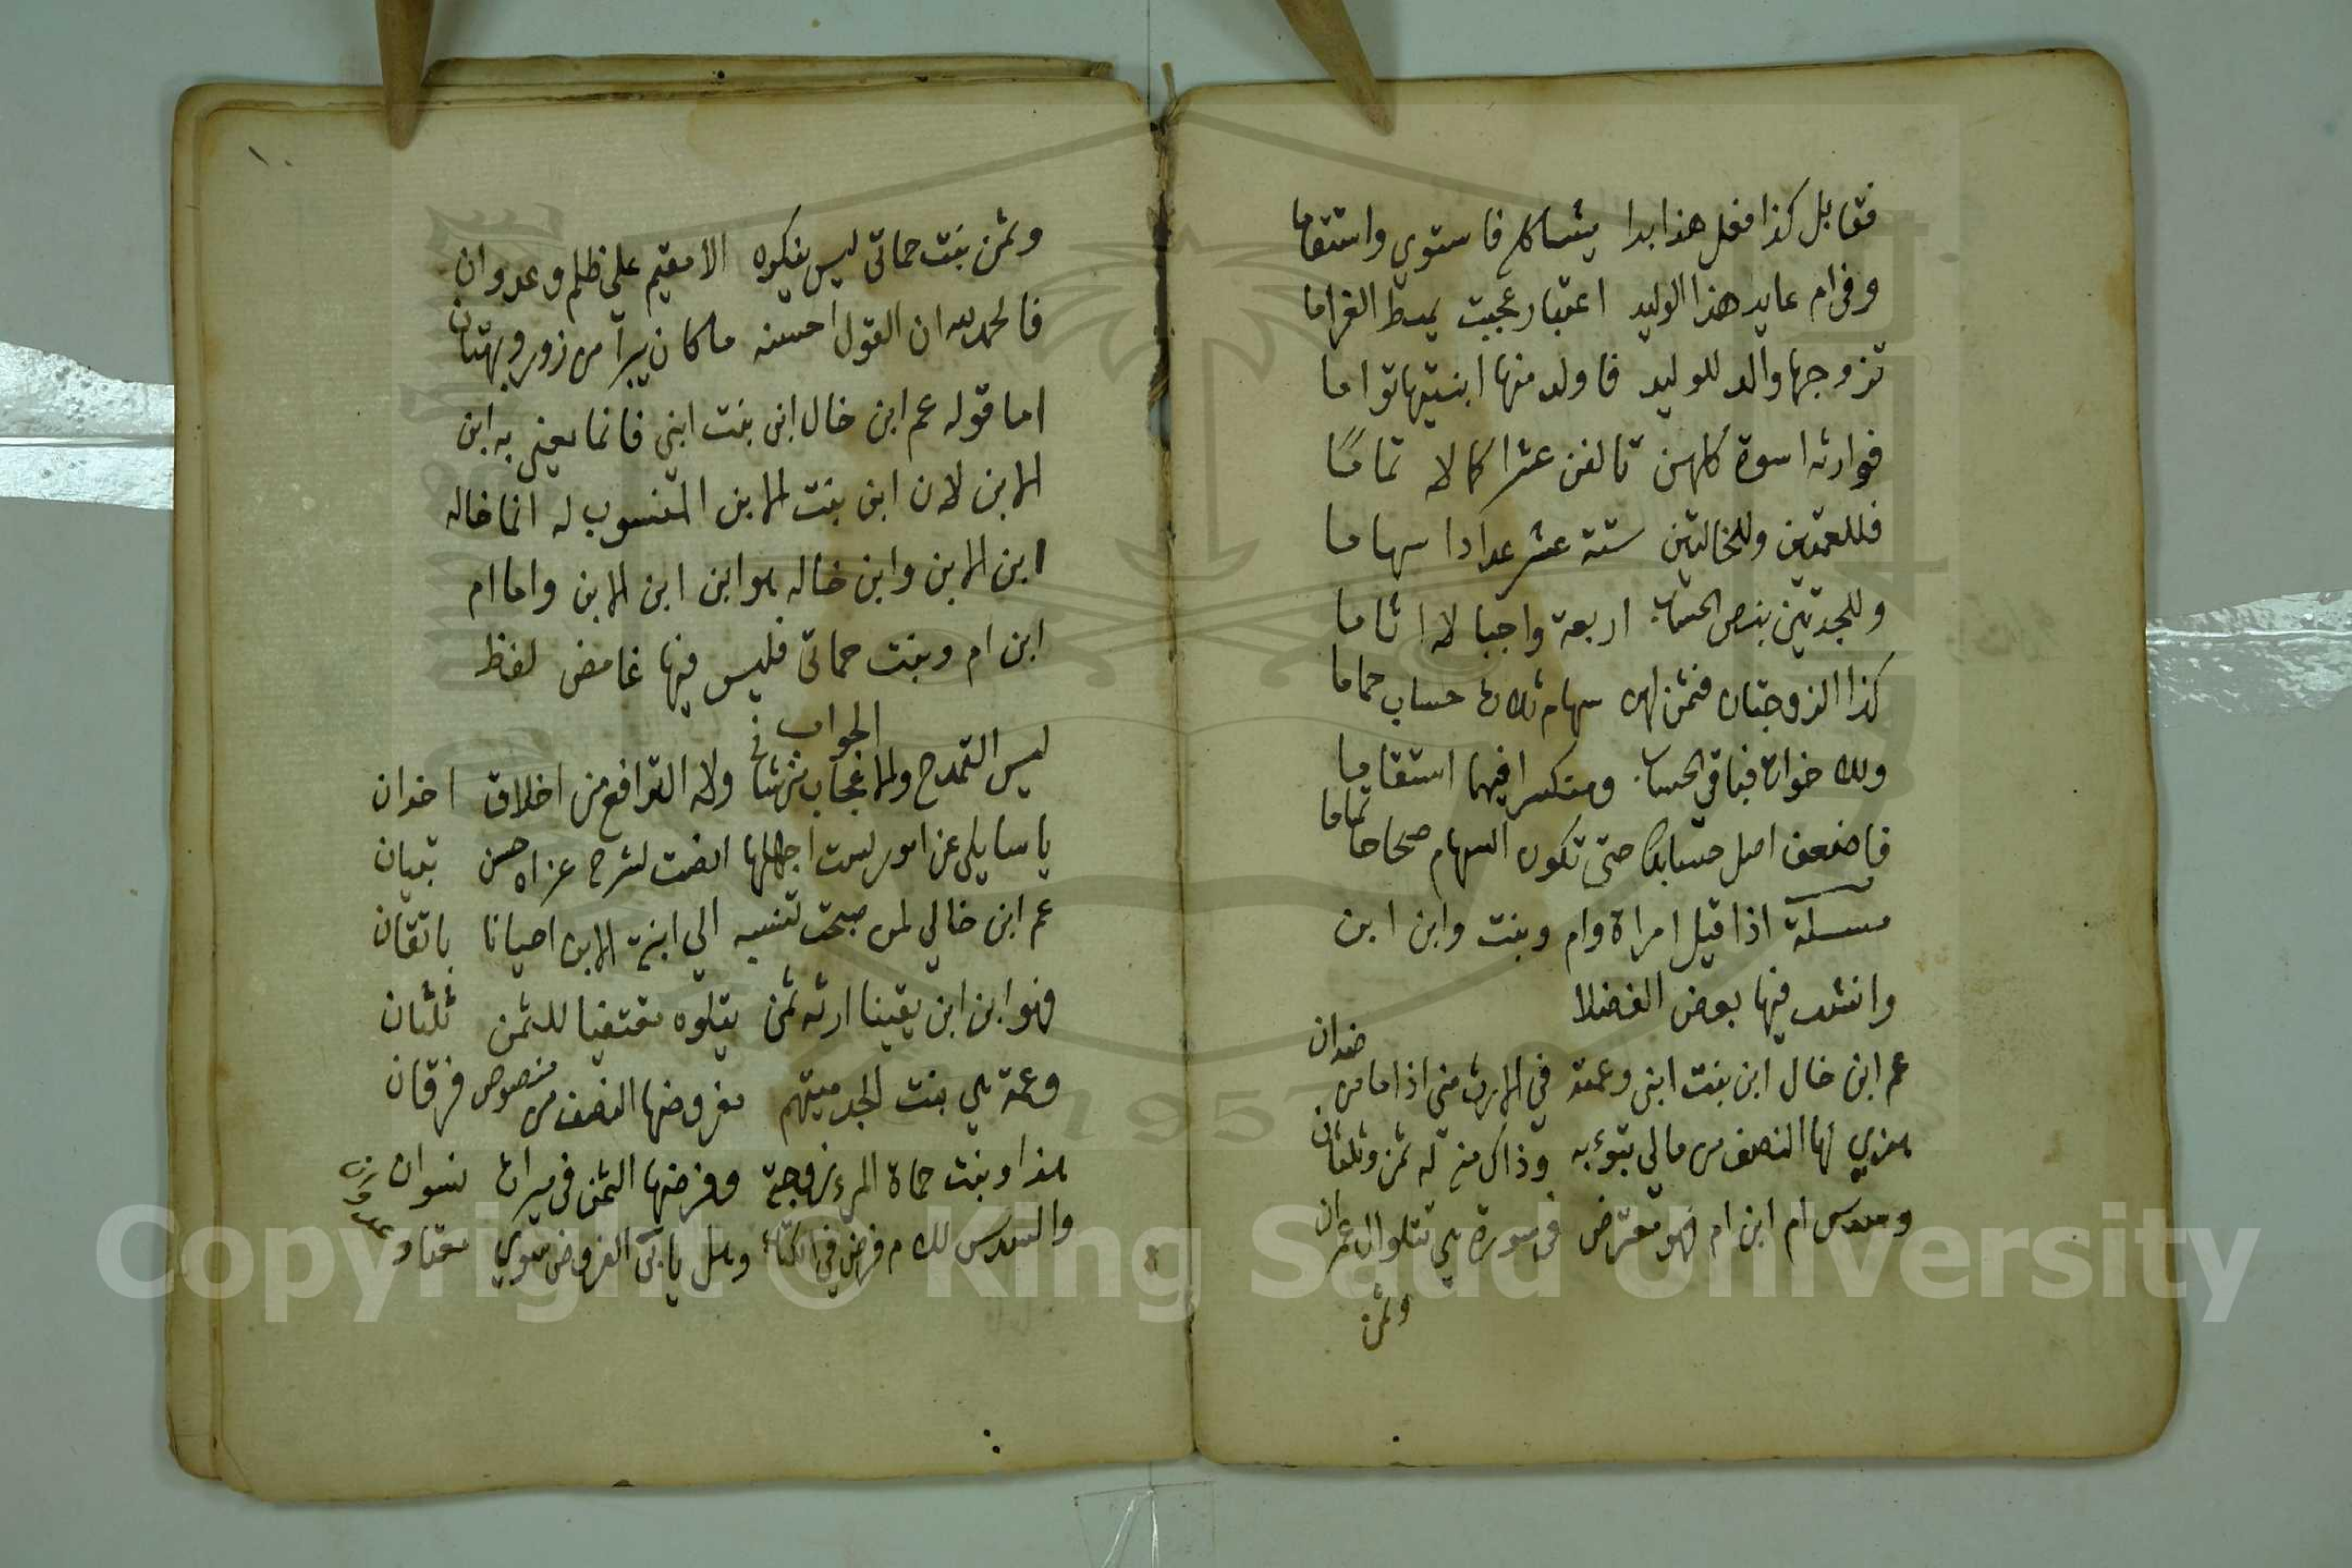 فقابل كذا فعل هذا بدا يشاكل فاستوي واستقاما
وفي ام عايد هذا الوليد اعتبار عجيب يميط الغراما
تزوجها والد للوليد فاولد منها ابنتيها تواما
فوارثه اسوة كلهن تالفن عشرا كمالا تماما
فللعمتين وللخالتين ستة عشر عدادا سهاما
وللجدتين بنص الحساب اربعة واجبا لا اثاما
كذا الزوجتان فثمن لهن سهام ثلاث حساب حماما
وللاخوات فباقي الحساب ومنكسرا فيها استقاما
فاضعف اصل حسابك حتى تكون السهام صحاحا تماما
مسئلة اذا قيل امراة وام وبنت وابن ابن
وانشد فيها بعض الفضلا
عم ابن خال ابن بنت ابني وعمته في الارث مني اذا ما مت ضدان
هذي لها النصف من مالي تبوء به وذاك منه له ثمن وثلثان
وسدس ام ابن ام فهو مفترض في سورة هي تتلو ال عمران
وثمن
١٠
وثمن بنت حماتي ليس ينكره الا مقيم علي ظلم وعدوان
فالحمد لله ان القول احسنه ما كان يبرأ من زور وبهتان
اما قوله عم ابن خال ابن بنت ابني فانما يعني به ابن
الابن لان ابن بنت الابن المنسوب له انما خاله
ابن الابن وابن خاله هو ابن ابن الابن واما ام
ابن ام وبنت حماتي فليس فيها غامض لفظ
الجواب
ليس التمدح والاعجاب شرتنا ولا الترافع من اخلاق اخدان
يا سايلي عن امور لست اجهلها انصت لشرح عزاه حسن تبيان
عم ابن خالي لمن صحت تنسبه الي ابنة الابن احيانا باتقان
فهو ابن ابن يقينا ارثه ثمن يتلوه مقتفيا للثمن ثلثان
وعمة هي بنت الجد ميتهم مفروضها النصف من منصوص فرقان
هذا وبنت حماة المرء زوجة وفرضها الثمن في ميراث نسوان
والسدس للام فرض في الكتاب وهل يأبى الفروض سوي معتاد عدوان